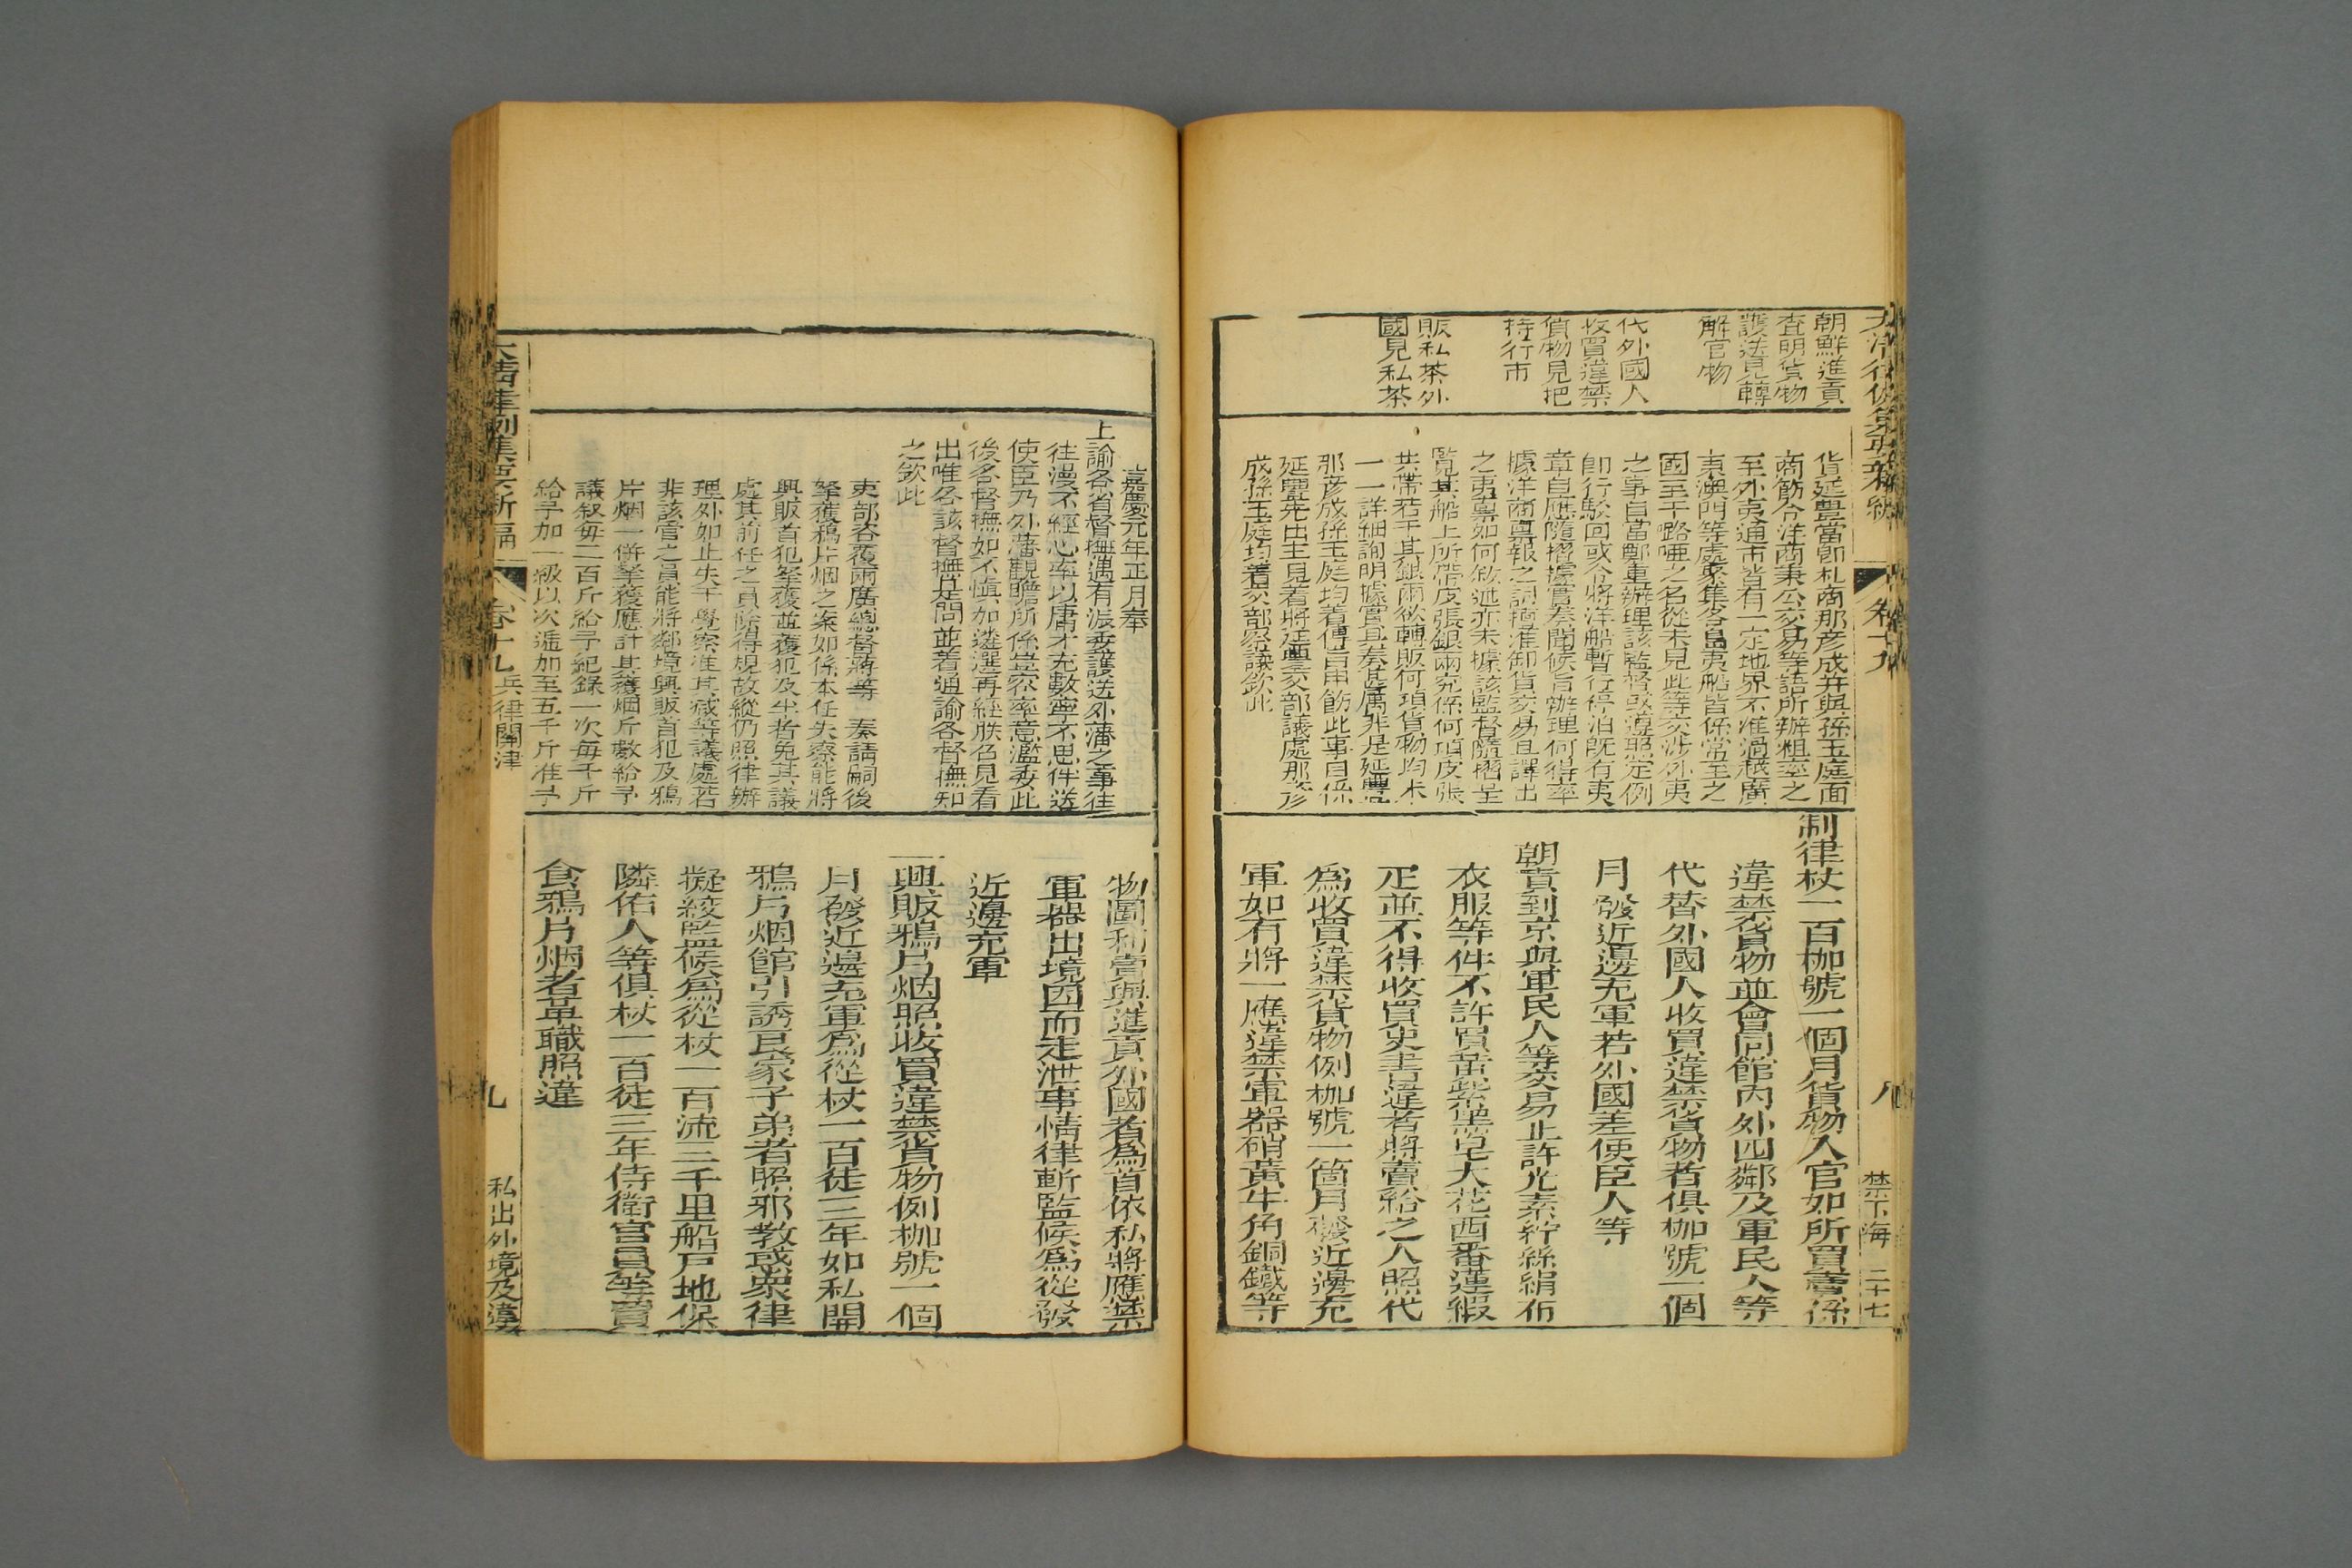 大清律例集要新編
卷十九
八
禁下海
二十七
朝鮮進貢
查明貨物
護送見轉
解官物
代外國人
收買違禁
貨物見把
持行市
販私茶外
國見私茶
貨延豐當卽札商那彥成并與孫玉庭面
商飭令洋商秉公交易等語所辦粗率之
至外夷通市皆有一定地界不准過越廣
東澳門等處聚集各島夷船皆係常至之
國至于路哑之名從未見此等交涉外夷
之事自當鄭重辦理該監督或遵照定例
卽行駁回或令將洋船暫行停泊旣有夷
章自應隨摺據實奏聞候旨辦理何得率
據洋商稟報之詞擅准卸貨交易且譯出
之夷稟如何敘述亦未據該監督隨摺呈
覽其船上所帶皮張銀兩究係何項皮張
共帶若干其銀兩欲轉販何項貨物均未
一一詳細詢明據實具奏甚屬非是延豐
那彥成孫玉庭均着傳旨申飭此事自係
延豐先出主見着將延豐交部議處那彥
成孫玉庭均着交部察議欽此
制律杖一百枷號一個月貨物入官如所買賣係
違禁貨物並會同館內外四鄰及軍民人等
代替外國人收買違禁貨物者俱枷號一個
月發近邊充軍若外國差使臣人等
朝貢到京與軍民人等交易止許光素紵絲絹布
衣服等件不許買黃紫黑皂大花西番蓮緞
疋並不得收買史書違者將賣給之人照代
爲收買違禁貨物例枷號一箇月發近邊充
軍如有將一應違禁軍器硝黃牛角銅鐵等
物圖利賣與進貢外國者為首依私將應禁
軍器出境因而走泄事情律斬監候爲從發
近邊充軍
一興販鴉片烟照收買違禁貨物例枷號一個
月發近邊充軍爲從杖一百徒三年如私開
鴉片烟館引誘良家子弟者照邪教惑衆律
擬絞監候爲從杖一百流三千里船戶地保
隣佑人等俱杖一百徒三年侍衛官員等買
食鴉片烟者革職照違
嘉慶元年正月奉
上諭各省督撫遇有派委護送外藩之事往
往漫不經心率以庸才充數寧不思伴送
使臣乃外藩觀瞻所係豈容率意濫委此
後各督撫如不愼加遴選再經朕召見看
出唯各該督撫是問並着通諭各督撫知
之欽此
吏部咨覆兩廣總督蔣等　奏請嗣後
拏獲鴉片烟之案如係本任失察能將
興販首犯拏獲並獲犯及半者免其議
處其前任之員除得規故縱仍照律辦
理外如止失于覺察准其減等議處若
非該管之員能將鄰境興販首犯及鴉
片烟一併拏獲應計其獲烟斤數給予
議敘每二百斤給予紀錄一次每千斤
給予加一級以次遞加至五千斤准予
大清律例集要新編
卷十九
兵律關津
九
私出外境及違